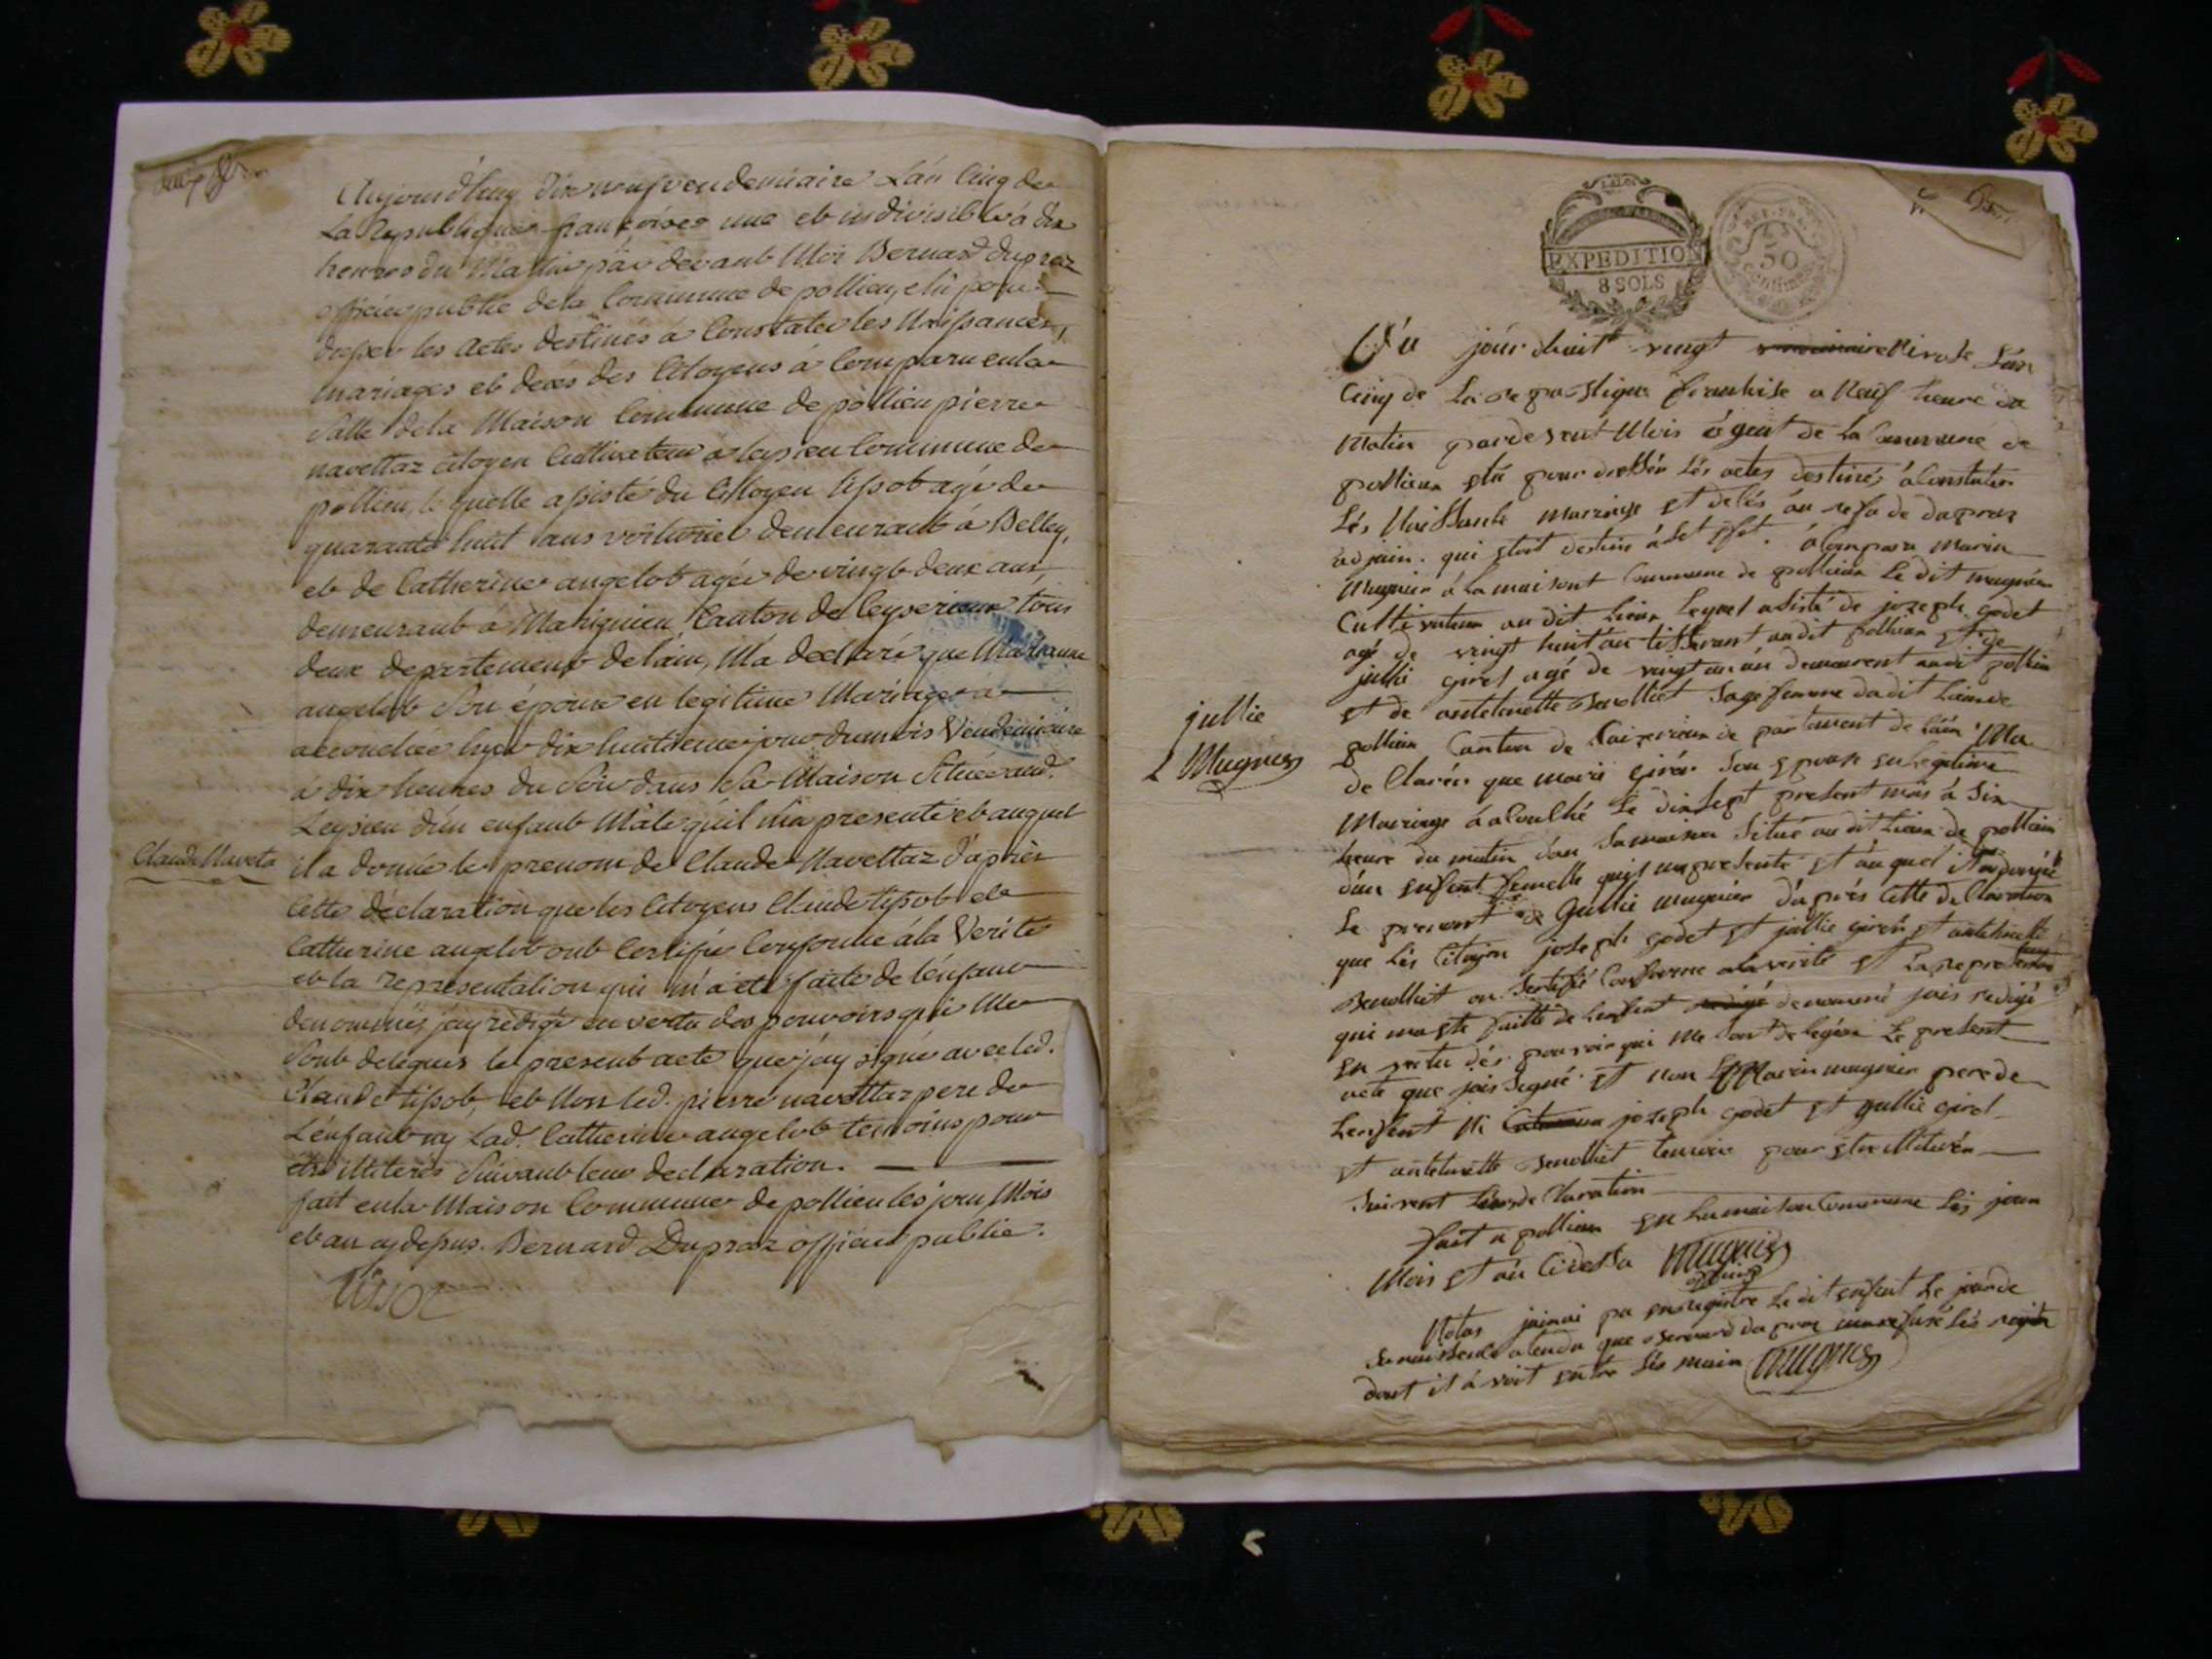 Aujourd'huy dix neuf vendemiaire L'an Cinq de
La Republique françoise une et indivisible à dix
heures du Matin par devant Moi Bernard Dupraz
officier public de la Commune de pollieu, elu pour
dresser les actes destinés à Constater les Naissances,
mariages et decès des Citoyens à Comparu en la
Salle de la Maison Commune de pollieu pierre
navettaz citoyen Cultivateur à leysieu Commune de
pollieu, le quelle assisté du Citoyen tissot agé de
quarante huit ans voiturier demeurant à Belley,
et de Catherine angelot agée de vingt deux ans,
demeurant à Marignieu Canton de Ceyserieux tous
deux departement de l'ain, M'a declaré que Marianne
angelot Son épouse en legitime Mariage à
accouchée hyer dix huitieme jour du mois Vendemiaire
à dix heures du Soir dans Sa Maison Située aud.
Leysieu d'un enfant Mâle qu'il m'a presenté et auquel
Claude Naveta
il a donné le prenom de Claude Navettaz d'après
Cette déclaration que les Citoyens Claude tissot et
Catherine angelot ont Certifié Conforme à la Verité
et la representation qui m'a eté faite de l'enfant
denommés j'ay rédigé en vertu des pouvoirs qui Me
Sont delegués le present acte que j'ay signé avec led.
Claude tissot, et Non led. pierre navettaz pere de
L'enfant ny Lad. Catherine angelot temoins pour
etre illiterés Suivant leur declaration.
fait en la Maison Commune de pollieu les jour Mois
et an cy dessus. Bernard Dupraz officier public.
tissot
EXPEDITION
8 SOLS
50
Centimes
jour duit vingt vendemiaire Nivose L'an
Cinq de La repuslique franhise a Neuf heure du
Matin pardevent Mois égent de la Commune de
pollieu elu pour dressér Lés actes destinés à Constater
Lés Naissanse marriage et desés au refu de dupraz
adjoin. qui etoit destiné à set éfet. à Comparu Marin
Mugnier à la maisont Commune de pollieu Le dit mugnier
Cultivateur au dit Lieux Lequel asisté de jozeph godet
agé de vingt huit an tisserant audit pollieu et de
jullie girel agé de vingt un án demeurent audit pollieu
et de antelmette Benolliet Sage femme du dit Lieu de
jullie
Mugnier
pollieu Canton de Caizerieux departement de L'ain Ma
de Claréz que marie girér Son epouse en Legitime
Mairiage à acouché Le dix sept present mois à Six
heure du matin dan Sa maison Situé au dit Lieux de pollieu
d'un enfent femelle qu'il ma presente et au quel il a donné
Le prenont de Gullie mugnier d'aprés Cette declaration
que Lés Citoyen joseph godet et jullie girel et antelmette
Benolliet on Sertifié Conforme a La verité et La representation
qui ma ete faitte de L'enfent denommé jais redigé
en vertu dés pouvoir qui Me Sont delegér Le present
acte que jais Segné et non Marin mugnier pere de
L'enfent Ni jozeph godet et gullie girel
et antelmette Benolliet temoin pour etre illiterér
Suivent Leurdeclaration
fait a pollieu en La maison Commune Lés jour
Mois et án Cidessu Mugnier
Notas jainai pu enregistre Le dit enfent Le jour de
Sa naissense atendu que Bernard du praz ma refusé Lés registre
dont il à voit entre Lés main Mugnier